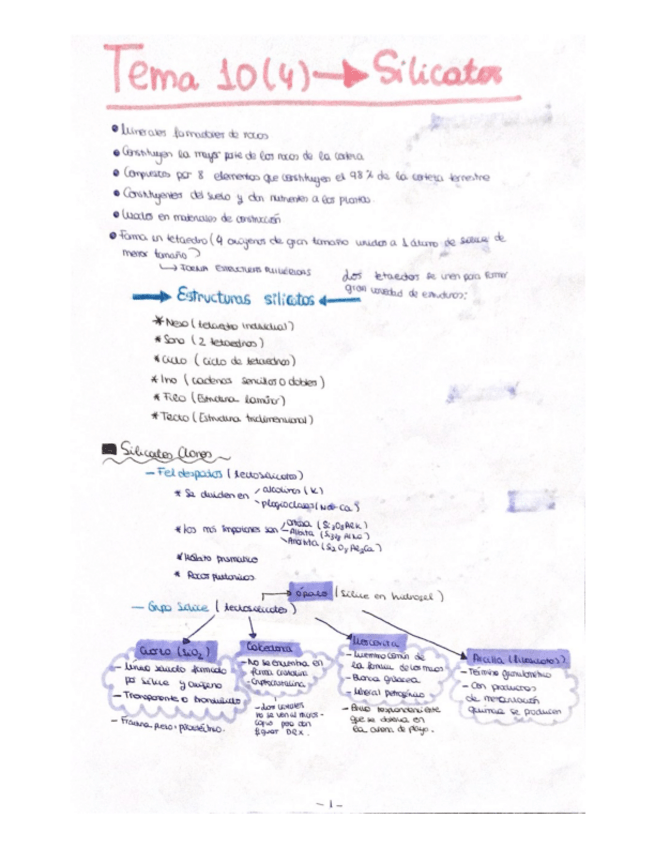 Tema 10(4) → Silicatos
• Minerales formadores de rocas
• Constituyen la mayor parte de las rocas de la corteza
• Compuestos por 8 elementos que constituyen el 98% de la corteza terrestre
• Constituyentes del suelo y dan nutrientes a las plantas.
• Usados en materiales de construcción
• Forma un tetaedro (4 oxígenos de gran tamaño unidos a 1 átomo de silicio de
menor tamaño)
↳ FORMA ESTRUCTURAS POLIMÉRICAS
Los tetaedros se unen para formar
gran variedad de estructuras:
→ Estructuras silicatos ←
* Neso (tetaedro individual)
* Soro (2 tetaedros)
* Ciclo (Ciclo de tetaedros)
* Ino (cadenas sencillas o dobles)
* Filo (Estructura laminar)
* Tecto (Estructura tridimensional)
■ Silicatos Claros
- Feldespatos (tectosilicatos)
* Se dividen en alcalinos (K)
plagioclasas (Na-Ca)
* Los más importantes son Ortosa
Albita
Anortita
* Hábito prismático
* Rocas plutónicas
ópalo (Sílice en hidrogel)
- Grupo Sílice (tectosilicatos)
Cuarzo (SiO₂)
- Único silicato formado
por sílice y oxígeno
- Transparente o translúcido
Calcedonia
- No se encuentra en
forma cristalina
- Criptocristalina
- Los cristales
no se ven al micros-
copio pero dan
Moscovita
- Blanca grisácea
que se observa en
la arena de playa.
Arcilla (filosilicatos).
- Término granulométrico
- Son productos
de meteorización
química se producen
- 1 -